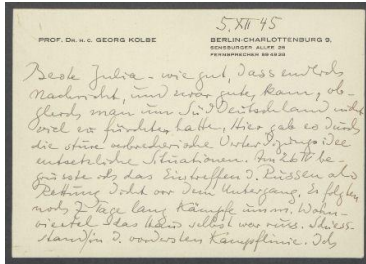 5. XII 45
PROF. DR. H. C. GEORG KOLBE
BERLIN-CHARLOTTENBURG 9,
SENSBURGER ALLEE 25
FERNSPRECHER
Beste Julia - wie gut, dass endlich
Nachricht, und zwar gute, kam, ob-
gleich man um Süddeutschland nicht
viel zu fürchten hatte. Hier gab es durch
die sture verbrecherische Verteidigungsidee
entsetzliche Situationen. Am be-
grüsste ich das Eintreffen d. Russen als
Rettung dicht vor dem Untergang. Es folgten
noch 7 Tage lang Kämpfe um Wohn-
viertel - das Haus selbst war russ. Schiess-
stand in d. vordersten Kampflinie. Ich